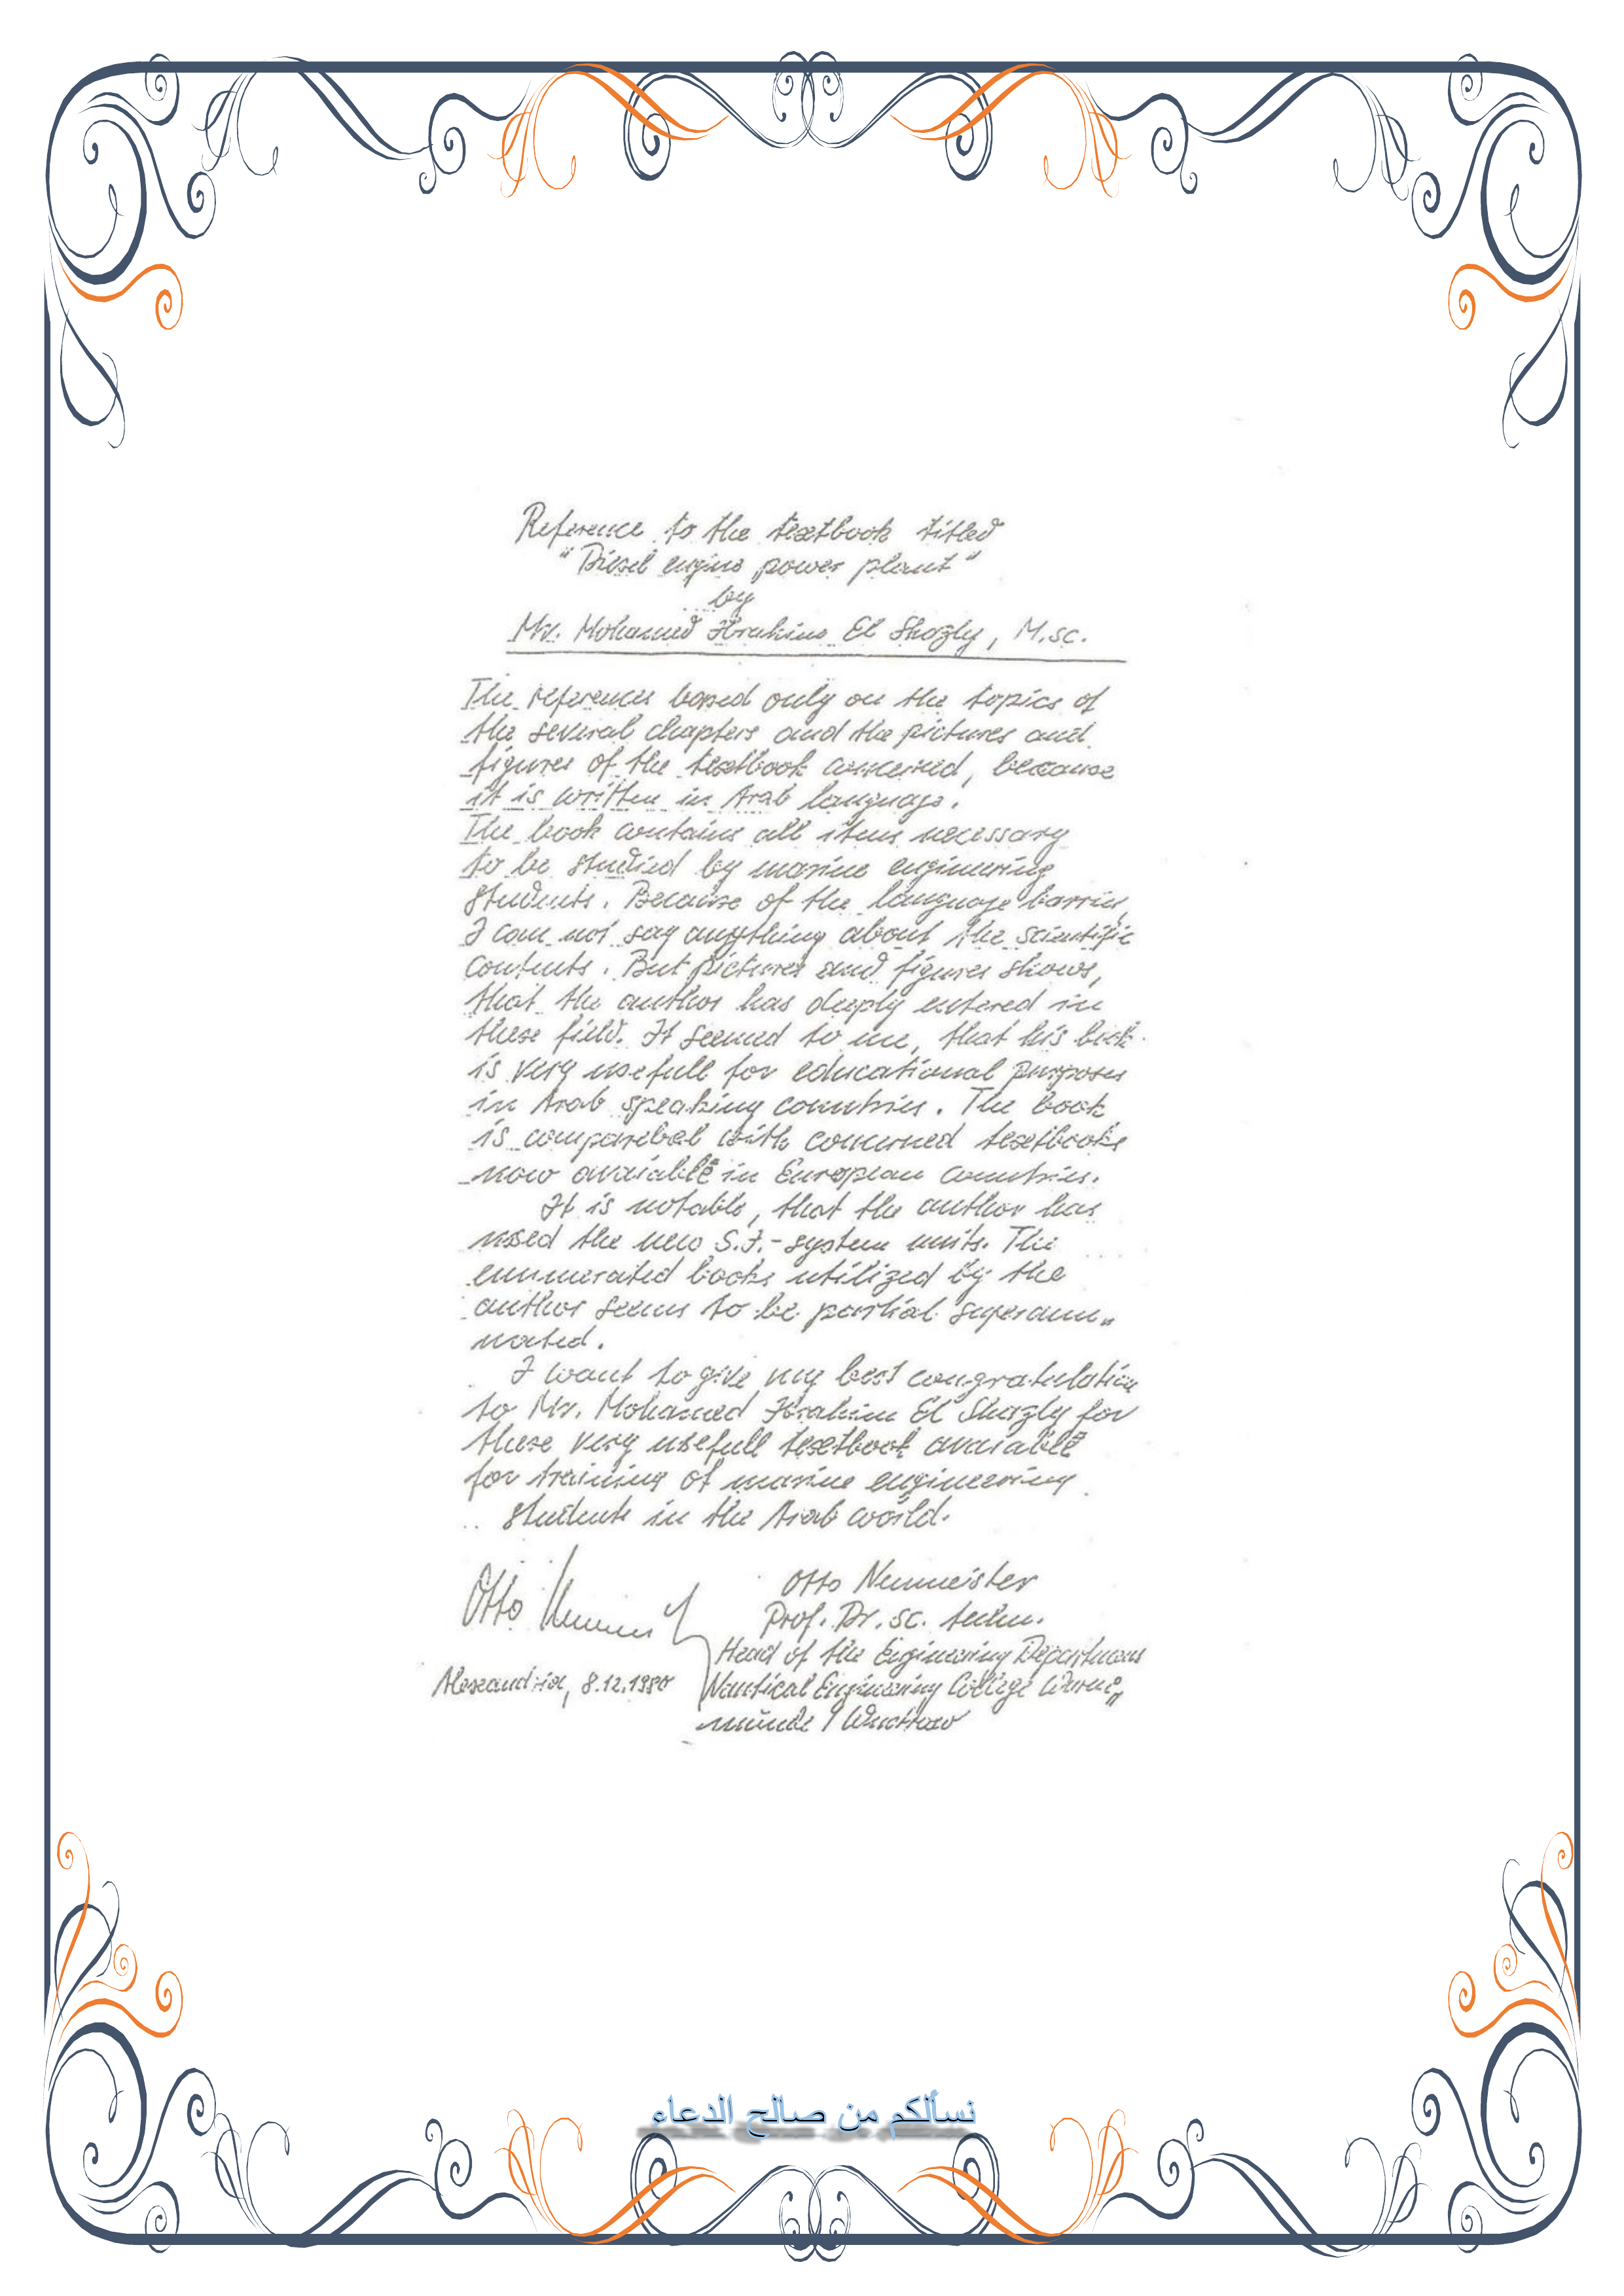 Reference to the textbook titled
"Diesel engine power plant"
by
Mr. Mohamed Ibrahim El Shazly, M.sc.
The references based only on the topics of
the several chapters and the pictures and
figures of the textbook concerned, because
it is written in Arab language.
The book contains all items necessary
to be studied by marine engineering
students. Because of the language barrier,
I can not say anything about the scientific
contents. But pictures and figures shows,
that the author has deeply entered in
these field. It seemed to me, that his book
is very usefull for educational purposes
in Arab speaking countries. The book
is comparebel with concerned textbooks
now avaiable in European countries.
It is notable, that the author has
used the new S.I.-system units. The
enumerated books utilized by the
author seems to be partial superann„
uated.
I want to give my best congratulation
to Mr. Mohamed Ibrahim El Shazly for
these very usefull textbook avaiable
for training of marine engineering
students in the Arab world.
Otto
Otto Neumeister
Prof. Dr. sc. techn.
Head of the Engineering Department
Alexandria, 8.12.1980
Nautical Engineering College Warne„
münde / Wustrow
نسألكم من صالح الدعاء